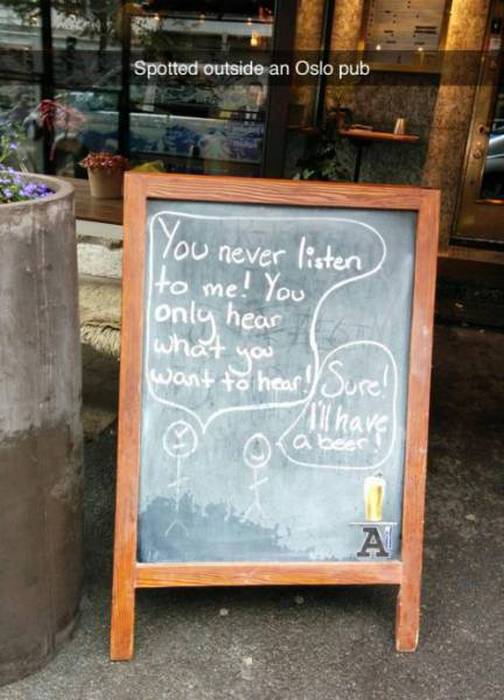 Spotted outside an Oslo pub
You never listen
to me! You
only hear
what you
want to hear!
Sure!
I'll have
a beer!
A